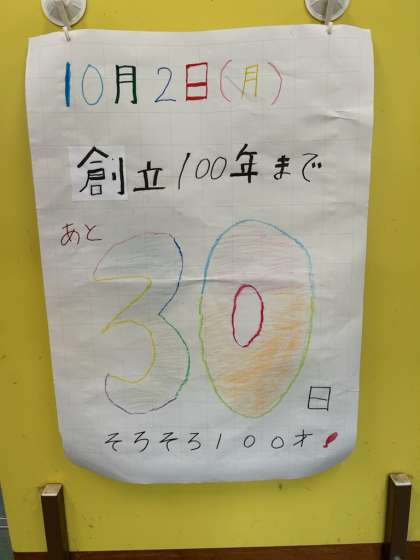 10月2日(月)
創立100年まで
あと
30日
そろそろ100才!